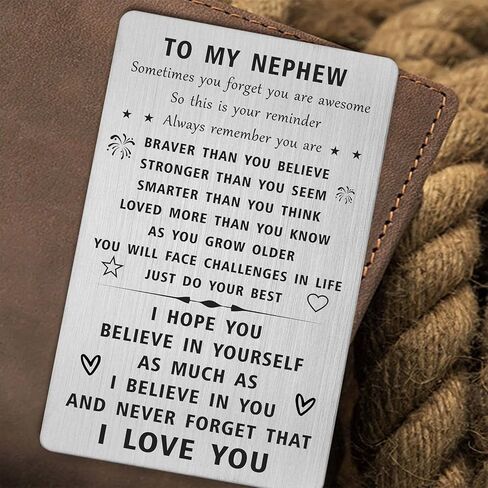 TO MY NEPHEW
Sometimes you forget you are awesome
So this is your reminder
Always remember you are
BRAVER THAN YOU BELIEVE
STRONGER THAN YOU SEEM
SMARTER THAN YOU THINK
LOVED MORE THAN YOU KNOW
AS YOU GROW OLDER
YOU WILL FACE CHALLENGES IN LIFE
JUST DO YOUR BEST
I HOPE YOU
BELIEVE IN YOURSELF
AS MUCH AS
I BELIEVE IN YOU
AND NEVER FORGET THAT
I LOVE YOU